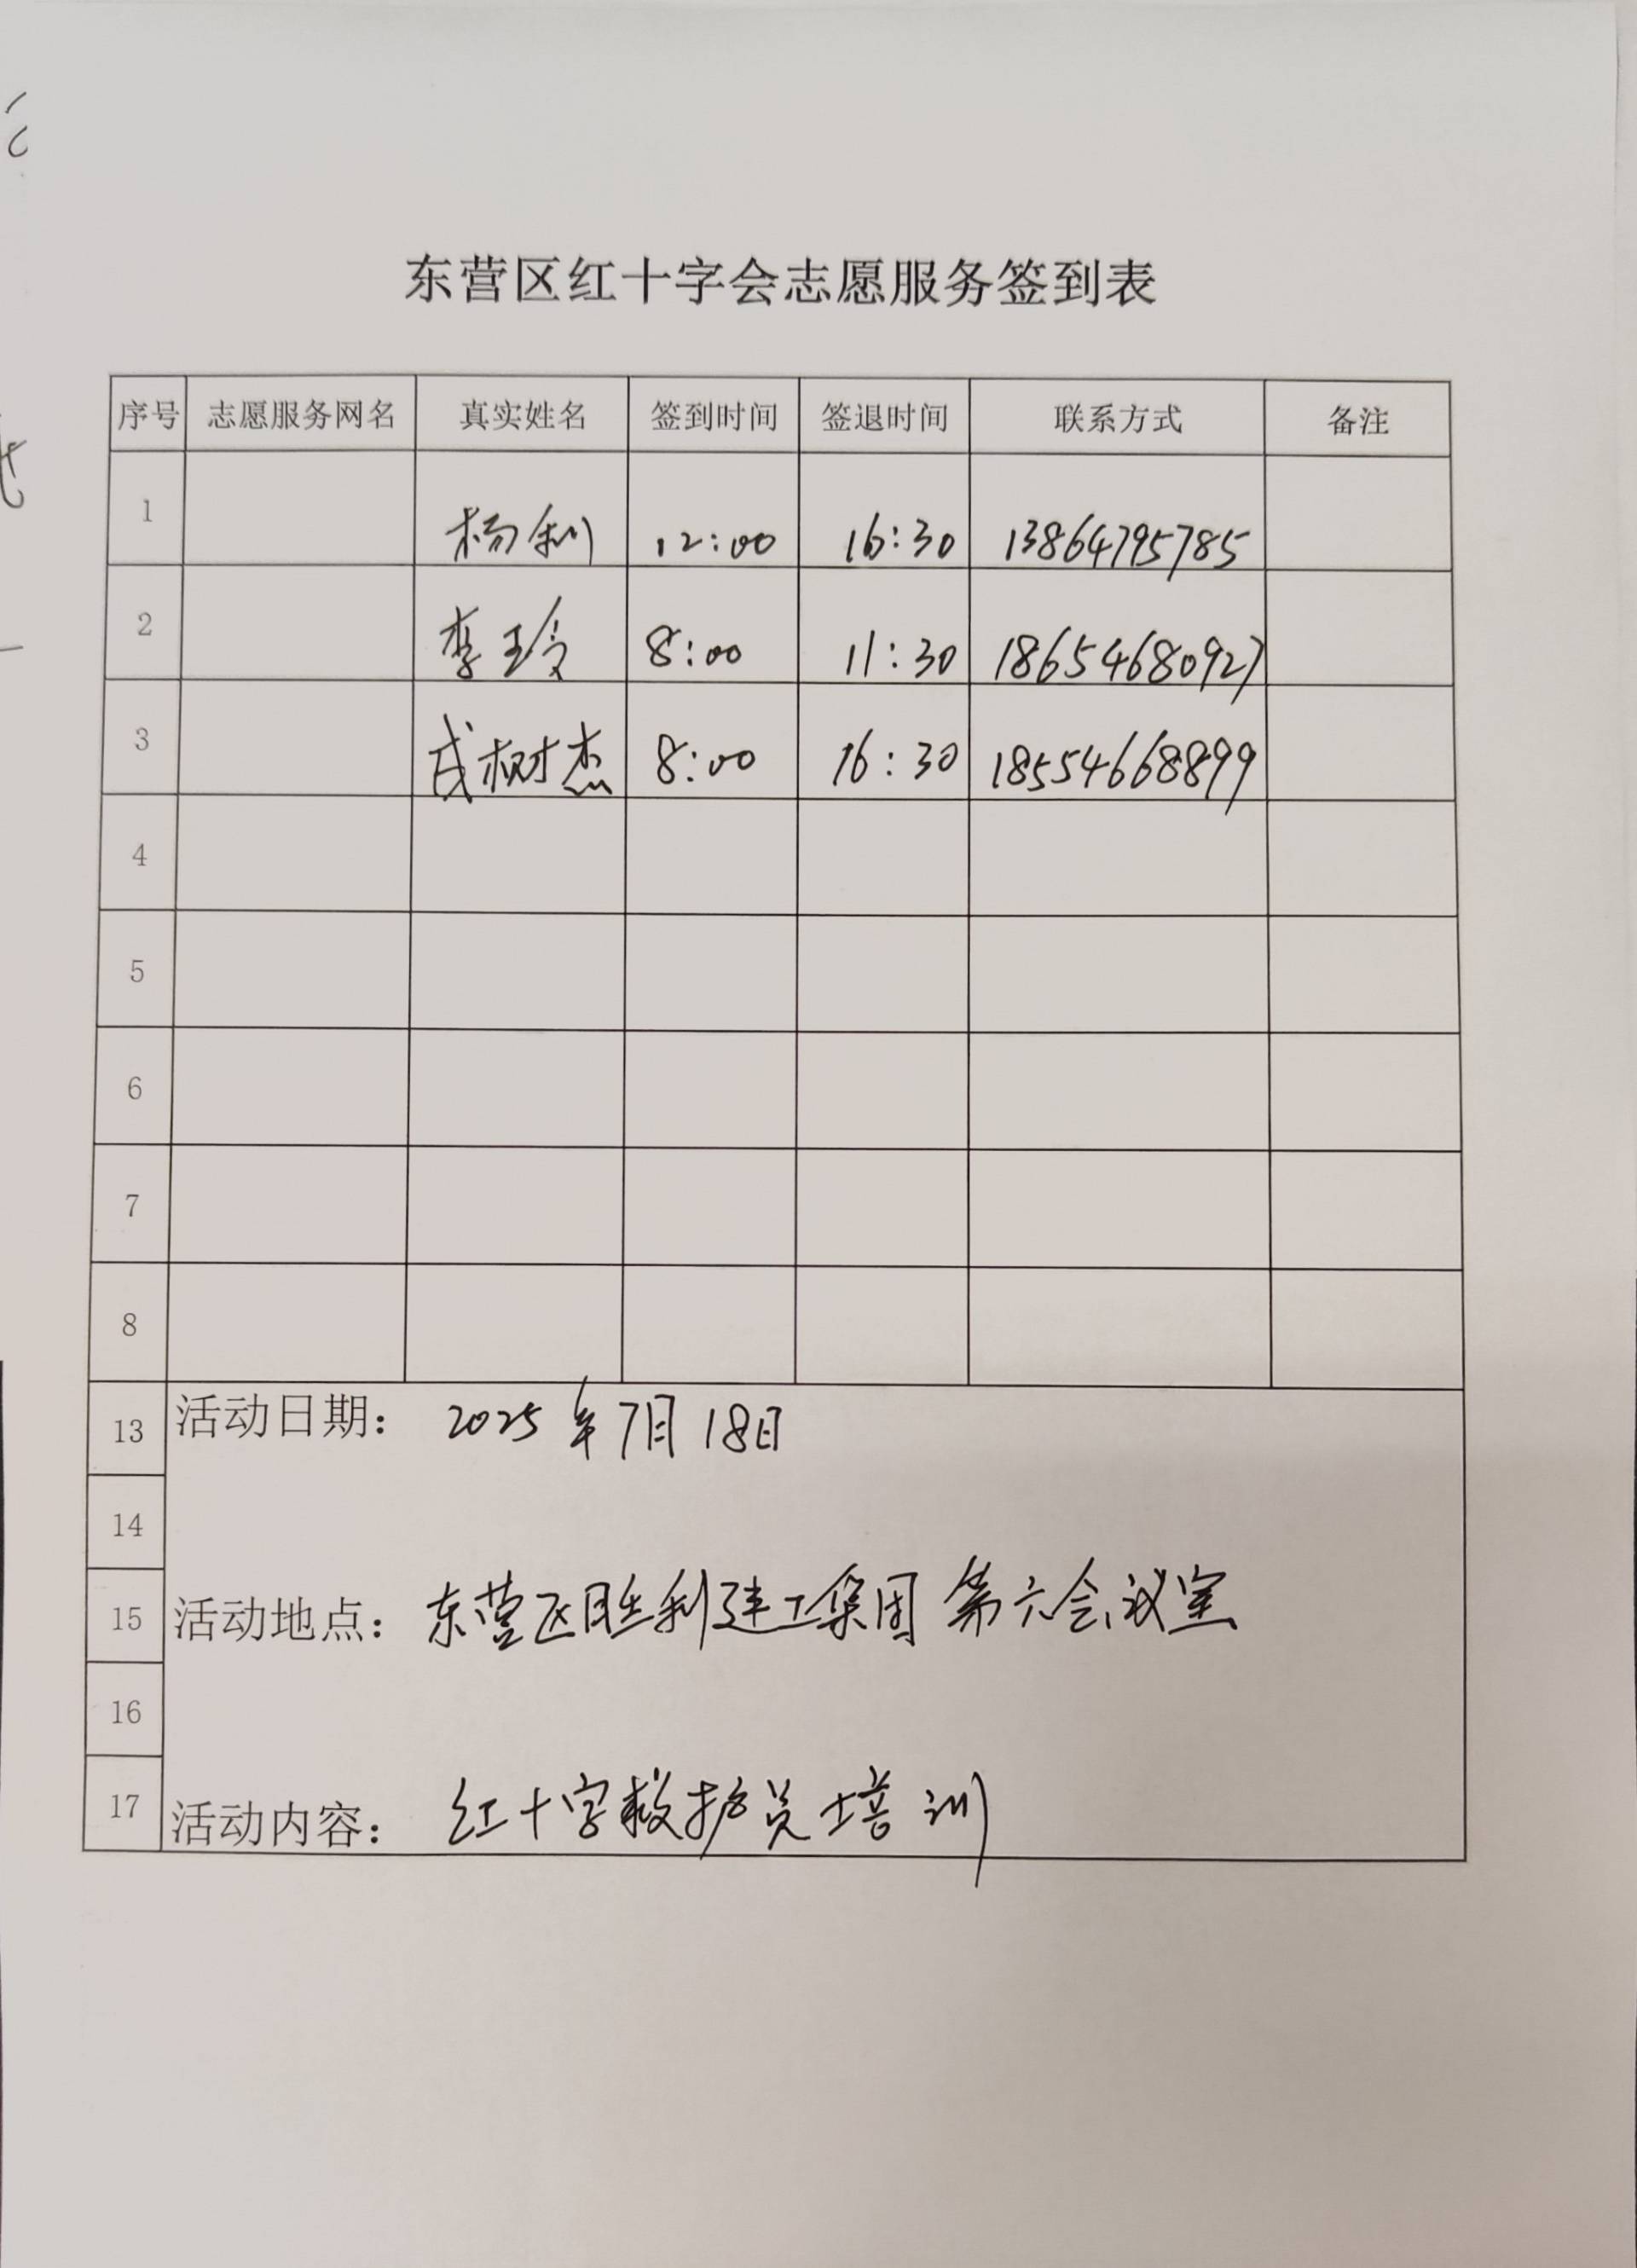 东营区红十字会志愿服务签到表
序号 志愿服务网名 真实姓名 签到时间 签退时间 联系方式 备注
1 杨利 12:00 16:30 13864795785
2 李玲 8:00 11:30 18654680927
3 戎树杰 8:00 16:30 18554668899
4
5
6
7
8
13 活动日期: 2025年7月18日
14
15 活动地点: 东营区胜利建工集团 第六会议室
16
17 活动内容: 红十字救护员培训